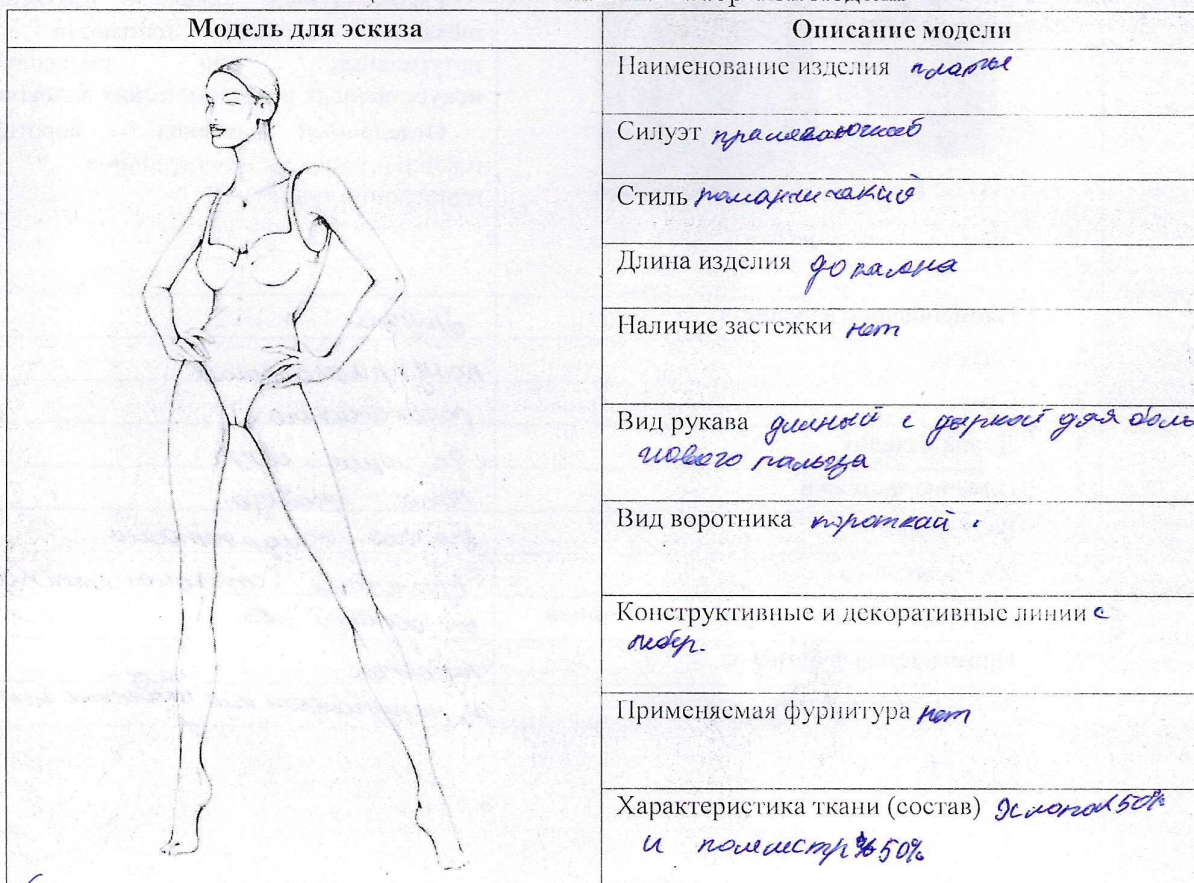 Модель для эскиза
Описание модели
Наименование изделия платье
Силуэт
Стиль романтический
Длина изделия до
Наличие застежки нет
Вид рукава длинный с дыркой для боль
шового пальца
Вид воротника короткай .
Конструктивные и декоративные линии с
Применяемая фурнитура нет
Характеристика ткани (состав) Хлопок 50%
и полиестр 50%